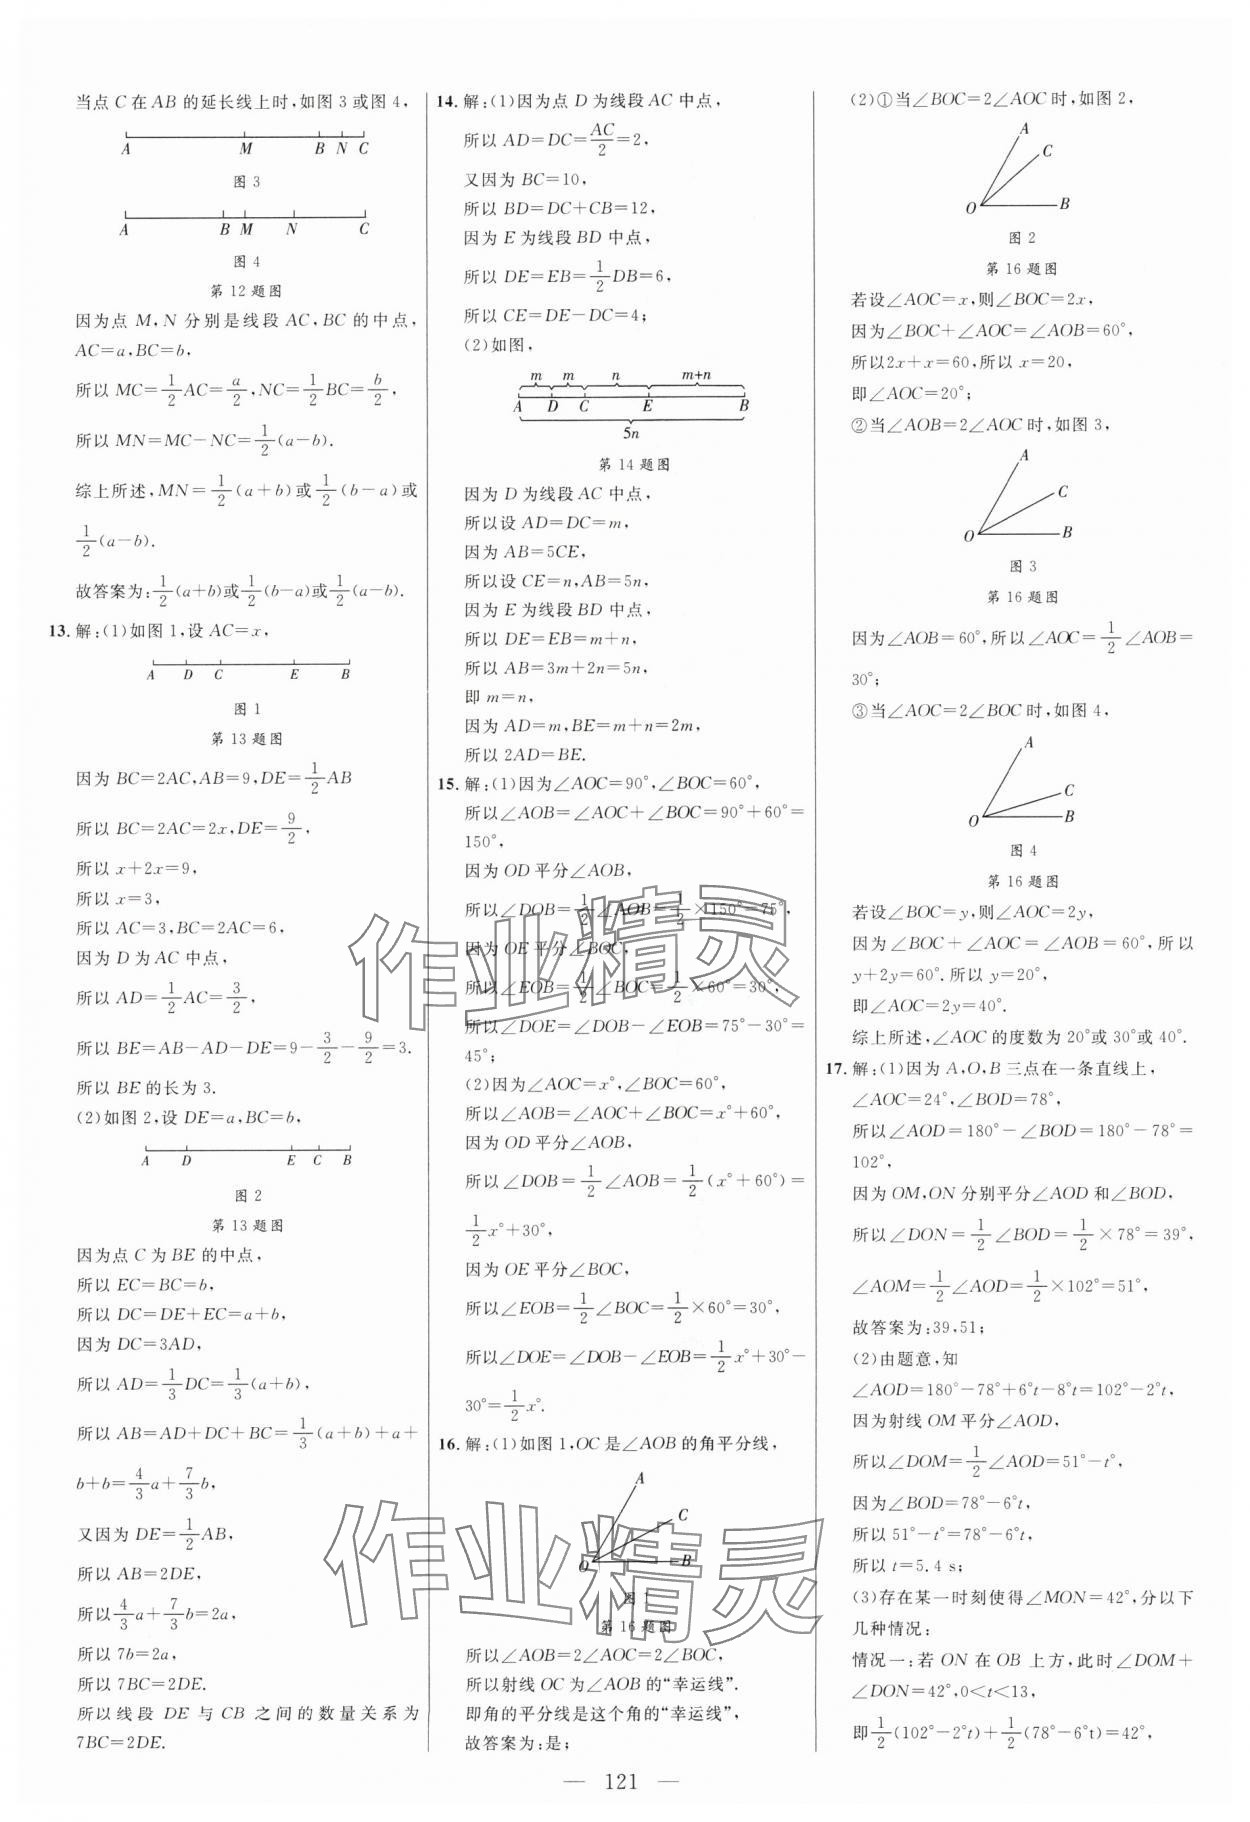 当点 C 在 AB 的延长线上时,如图 3 或图 4,
A M B N C
图 3
A B M N C
图 4
第 12 题图
因为点 M,N 分别是线段 AC,BC 的中点,
AC=a,BC=b,
所以 MC=1/2AC=a/2,NC=1/2BC=b/2,
所以 MN=MC-NC=1/2(a-b).
综上所述,MN=1/2(a+b)或1/2(b-a)或
1/2(a-b).
故答案为:1/2(a+b)或1/2(b-a)或1/2(a-b).
13. 解:(1)如图 1,设 AC=x,
A D C E B
图 1
第 13 题图
因为 BC=2AC,AB=9,DE=1/2AB
所以 BC=2AC=2x,DE=9/2,
所以 x+2x=9,
所以 x=3,
所以 AC=3,BC=2AC=6,
因为 D 为 AC 中点,
所以 AD=1/2AC=3/2,
所以 BE=AB-AD-DE=9-3/2-9/2=3.
所以 BE 的长为 3.
(2)如图 2,设 DE=a,BC=b,
A D E C B
图 2
第 13 题图
因为点 C 为 BE 的中点,
所以 EC=BC=b,
所以 DC=DE+EC=a+b,
因为 DC=3AD,
所以 AD=1/3DC=1/3(a+b),
所以 AB=AD+DC+BC=1/3(a+b)+a+
b+b=4/3a+7/3b,
又因为 DE=1/2AB,
所以 AB=2DE,
所以4/3a+7/3b=2a,
所以 7b=2a,
所以 7BC=2DE.
所以线段 DE 与 CB 之间的数量关系为
7BC=2DE.
14. 解:(1)因为点 D 为线段 AC 中点,
所以 AD=DC=AC/2=2,
又因为 BC=10,
所以 BD=DC+CB=12,
因为 E 为线段 BD 中点,
所以 DE=EB=1/2DB=6,
所以 CE=DE-DC=4;
(2)如图,
m m n m+n
A D C E B
5n
第 14 题图
因为 D 为线段 AC 中点,
所以设 AD=DC=m,
因为 AB=5CE,
所以设 CE=n,AB=5n,
因为 E 为线段 BD 中点,
所以 DE=EB=m+n,
所以 AB=3m+2n=5n,
即 m=n,
因为 AD=m,BE=m+n=2m,
所以 2AD=BE.
15. 解:(1)因为∠AOC=90°,∠BOC=60°,
所以∠AOB=∠AOC+∠BOC=90°+60°=
150°,
因为 OD 平分∠AOB,
所以∠DOB=1/2∠AOB=1/2×150°=75°,
因为 OE 平分∠BOC,
所以∠EOB=1/2∠BOC=1/2×60°=30°,
所以∠DOE=∠DOB-∠EOB=75°-30°=
45°;
(2)因为∠AOC=x°,∠BOC=60°,
所以∠AOB=∠AOC+∠BOC=x°+60°,
因为 OD 平分∠AOB,
所以∠DOB=1/2∠AOB=1/2(x°+60°)=
1/2x°+30°,
因为 OE 平分∠BOC,
所以∠EOB=1/2∠BOC=1/2×60°=30°,
所以∠DOE=∠DOB-∠EOB=1/2x°+30°-
30°=1/2x°.
16. 解:(1)如图 1,OC 是∠AOB 的角平分线,
A
C
O B
图 1
第 16 题图
所以∠AOB=2∠AOC=2∠BOC,
所以射线 OC 为∠AOB 的“幸运线”.
即角的平分线是这个角的“幸运线”,
故答案为:是;
(2)①当∠BOC=2∠AOC 时,如图 2,
A
C
O B
图 2
第 16 题图
若设∠AOC=x,则∠BOC=2x,
因为∠BOC+∠AOC=∠AOB=60°,
所以2x+x=60,所以 x=20,
即∠AOC=20°;
②当∠AOB=2∠AOC 时,如图 3,
A
C
O B
图 3
第 16 题图
因为∠AOB=60°,所以∠AOC=1/2∠AOB=
30°;
③当∠AOC=2∠BOC 时,如图 4,
A
C
O B
图 4
第 16 题图
若设∠BOC=y,则∠AOC=2y,
因为∠BOC+∠AOC=∠AOB=60°,所以
y+2y=60°.所以 y=20°,
即∠AOC=2y=40°.
综上所述,∠AOC 的度数为 20°或 30°或 40°.
17. 解:(1)因为 A,O,B 三点在一条直线上,
∠AOC=24°,∠BOD=78°,
所以∠AOD=180°-∠BOD=180°-78°=
102°,
因为 OM,ON 分别平分∠AOD 和∠BOD,
所以∠DON=1/2∠BOD=1/2×78°=39°,
∠AOM=1/2∠AOD=1/2×102°=51°,
故答案为:39,51;
(2)由题意,知
∠AOD=180°-78°+6°t-8°t=102°-2°t,
因为射线 OM 平分∠AOD,
所以∠DOM=1/2∠AOD=51°-t°,
因为∠BOD=78°-6°t,
所以 51°-t°=78°-6°t,
所以 t=5.4 s;
(3)存在某一时刻使得∠MON=42°,分以下
几种情况:
情况一:若 ON 在 OB 上方,此时∠DOM+
∠DON=42°,0<t<13,
即1/2(102°-2°t)+1/2(78°-6°t)=42°,
— 121 —
作业精灵
作业精灵